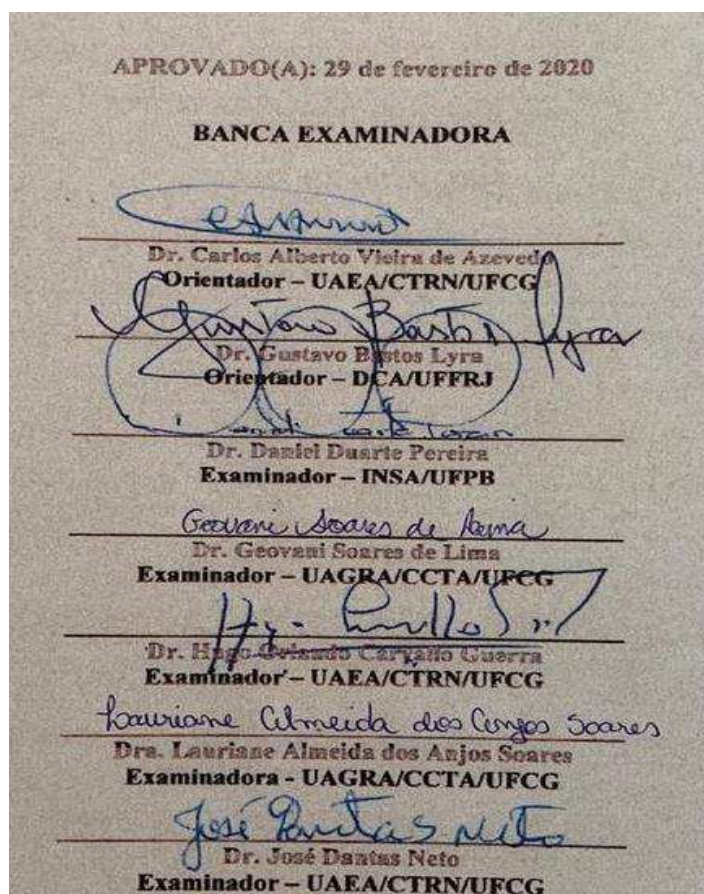 APROVADO(A): 29 de fevereiro de 2020
BANCA EXAMINADORA
Dr. Carlos Alberto Vieira de Azevedo
Orientador – UAEA/CTRN/UFCG
Gustavo Bastos Lyra
Dr. Gustavo Bastos Lyra
Orientador – DCA/UFFRJ
Dr. Daniel Duarte Pereira
Examinador – INSA/UFPB
Geovani Soares de Lima
Dr. Geovani Soares de Lima
Examinador – UAGRA/CCTA/UFCG
Dr. Hugo Orlando Carvallo Guerra
Examinador – UAEA/CTRN/UFCG
Lauriane Almeida dos Anjos Soares
Dra. Lauriane Almeida dos Anjos Soares
Examinadora - UAGRA/CCTA/UFCG
José Dantas Neto
Dr. José Dantas Neto
Examinador – UAEA/CTRN/UFCG